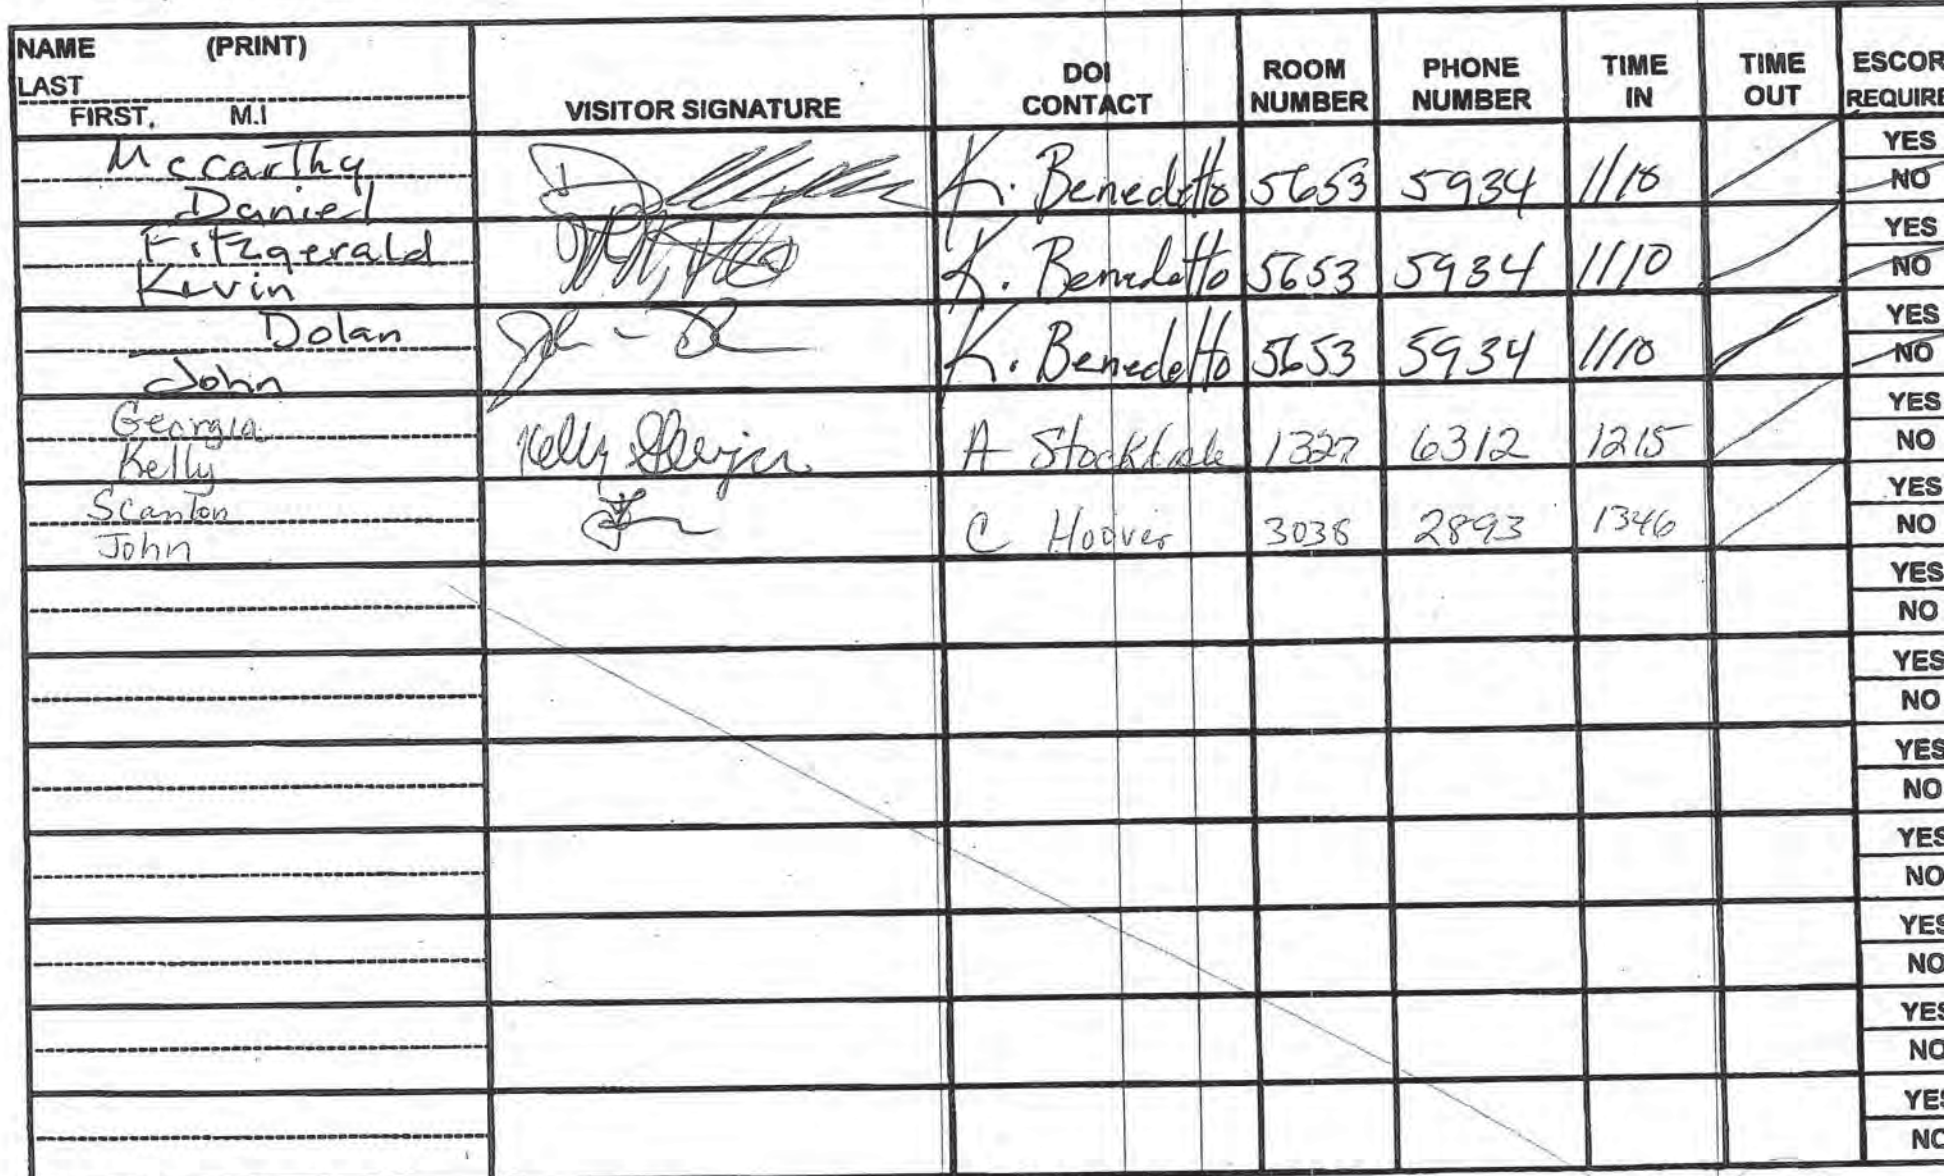 NAME (PRINT)
LAST
FIRST, M.I
VISITOR SIGNATURE
DOI
CONTACT
ROOM
NUMBER
PHONE
NUMBER
TIME
IN
TIME
OUT
ESCOR
REQUIRE
Mccarthy
Daniel
K. Benedetto 5653 5934 1110
YES
NO
Fitzgerald
Kevin
K. Benedetto 5653 5934 1110
YES
NO
Dolan
John
K. Benedetto 5653 5934 1110
YES
NO
Georgia
Kelly
Kelly
A 1327 6312 1215
YES
NO
Scanlon
John
C Hoover 3038 2893 1346
YES
NO
YES
NO
YES
NO
YES
NO
YES
NO
YES
NO
YES
NO
YES
NO